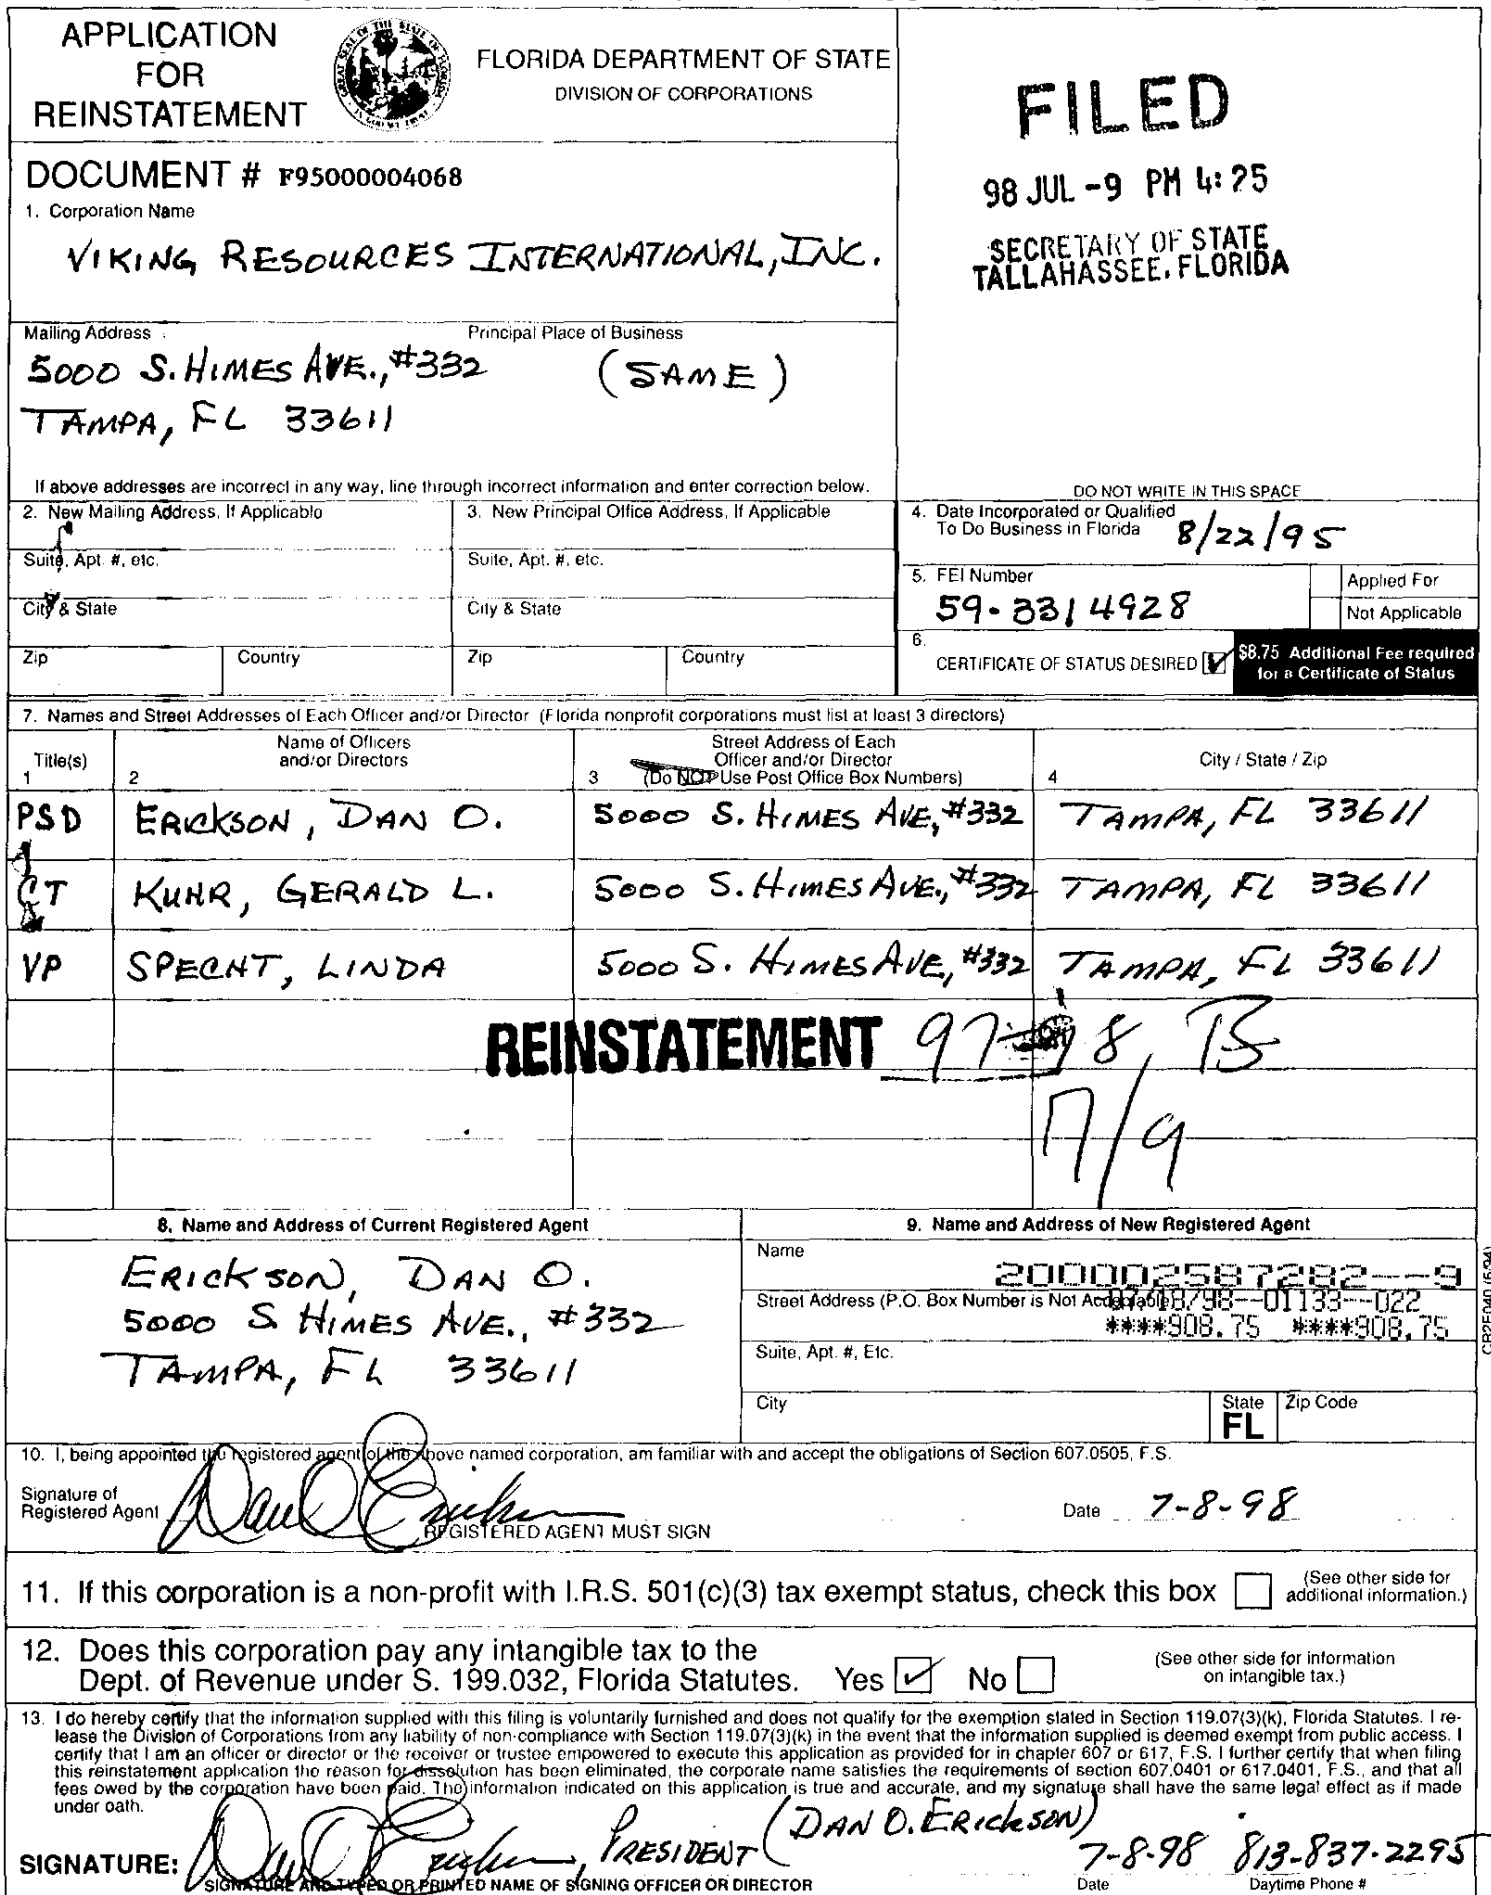 APPLICATION
FOR
REINSTATEMENT
FLORIDA DEPARTMENT OF STATE
DIVISION OF CORPORATIONS
FILED
98 JUL -9 PM 4:25
SECRETARY OF STATE
TALLAHASSEE, FLORIDA
DOCUMENT # F95000004068
1. Corporation Name
VIKING RESOURCES INTERNATIONAL, INC.
Mailing Address
Principal Place of Business
5000 S. HIMES AVE., #332
(SAME)
TAMPA, FL 33611
If above addresses are incorrect in any way, line through incorrect information and enter correction below.
DO NOT WRITE IN THIS SPACE
2. New Mailing Address, If Applicable
3. New Principal Office Address, If Applicable
4. Date Incorporated or Qualified
To Do Business in Florida 8/22/95
Suite, Apt. #, etc.
Suite, Apt. #, etc.
5. FEI Number
59-3314928
Applied For
Not Applicable
City & State
City & State
6.
CERTIFICATE OF STATUS DESIRED
$8.75 Additional Fee required
for a Certificate of Status
Zip
Country
Zip
Country
7. Names and Street Addresses of Each Officer and/or Director (Florida nonprofit corporations must list at least 3 directors)
Title(s)
1
Name of Officers
and/or Directors
2
Street Address of Each
Officer and/or Director
3 (Do NOT Use Post Office Box Numbers)
City / State / Zip
4
PSD ERICKSON, DAN O. 5000 S. HIMES AVE, #332 TAMPA, FL 33611
CT KUHR, GERALD L. 5000 S. HIMES AVE., #332 TAMPA, FL 33611
VP SPECHT, LINDA 5000 S. HIMES AVE, #332 TAMPA, FL 33611
REINSTATEMENT 97-98
7/9
8. Name and Address of Current Registered Agent
ERICKSON, DAN O.
5000 S. HIMES AVE., #332
TAMPA, FL 33611
9. Name and Address of New Registered Agent
Name
200002587282--9
Street Address (P.O. Box Number is Not Acceptable)
--01133--022
****908.75 ****908.75
Suite, Apt. #, Etc.
City
State
FL
Zip Code
CR2E040 (6/94)
10. I, being appointed the registered agent of the above named corporation, am familiar with and accept the obligations of Section 607.0505, F.S.
Signature of
Registered Agent Dan O Erickson
Date 7-8-98
REGISTERED AGENT MUST SIGN
11. If this corporation is a non-profit with I.R.S. 501(c)(3) tax exempt status, check this box
(See other side for
additional information.)
12. Does this corporation pay any intangible tax to the
Dept. of Revenue under S. 199.032, Florida Statutes. Yes No
(See other side for information
on intangible tax.)
13. I do hereby certify that the information supplied with this filing is voluntarily furnished and does not qualify for the exemption stated in Section 119.07(3)(k), Florida Statutes. I re-
lease the Division of Corporations from any liability of non-compliance with Section 119.07(3)(k) in the event that the information supplied is deemed exempt from public access. I
certify that I am an officer or director or the receiver or trustee empowered to execute this application as provided for in chapter 607 or 617, F.S. I further certify that when filing
this reinstatement application the reason for dissolution has been eliminated, the corporate name satisfies the requirements of section 607.0401 or 617.0401, F.S., and that all
fees owed by the corporation have been paid. The information indicated on this application is true and accurate, and my signature shall have the same legal effect as if made
under oath.
SIGNATURE: Dan O Erickson, PRESIDENT (DAN O. ERICKSON)
7-8-98 813-837-2295
SIGNATURE AND TYPED OR PRINTED NAME OF SIGNING OFFICER OR DIRECTOR
Date
Daytime Phone #